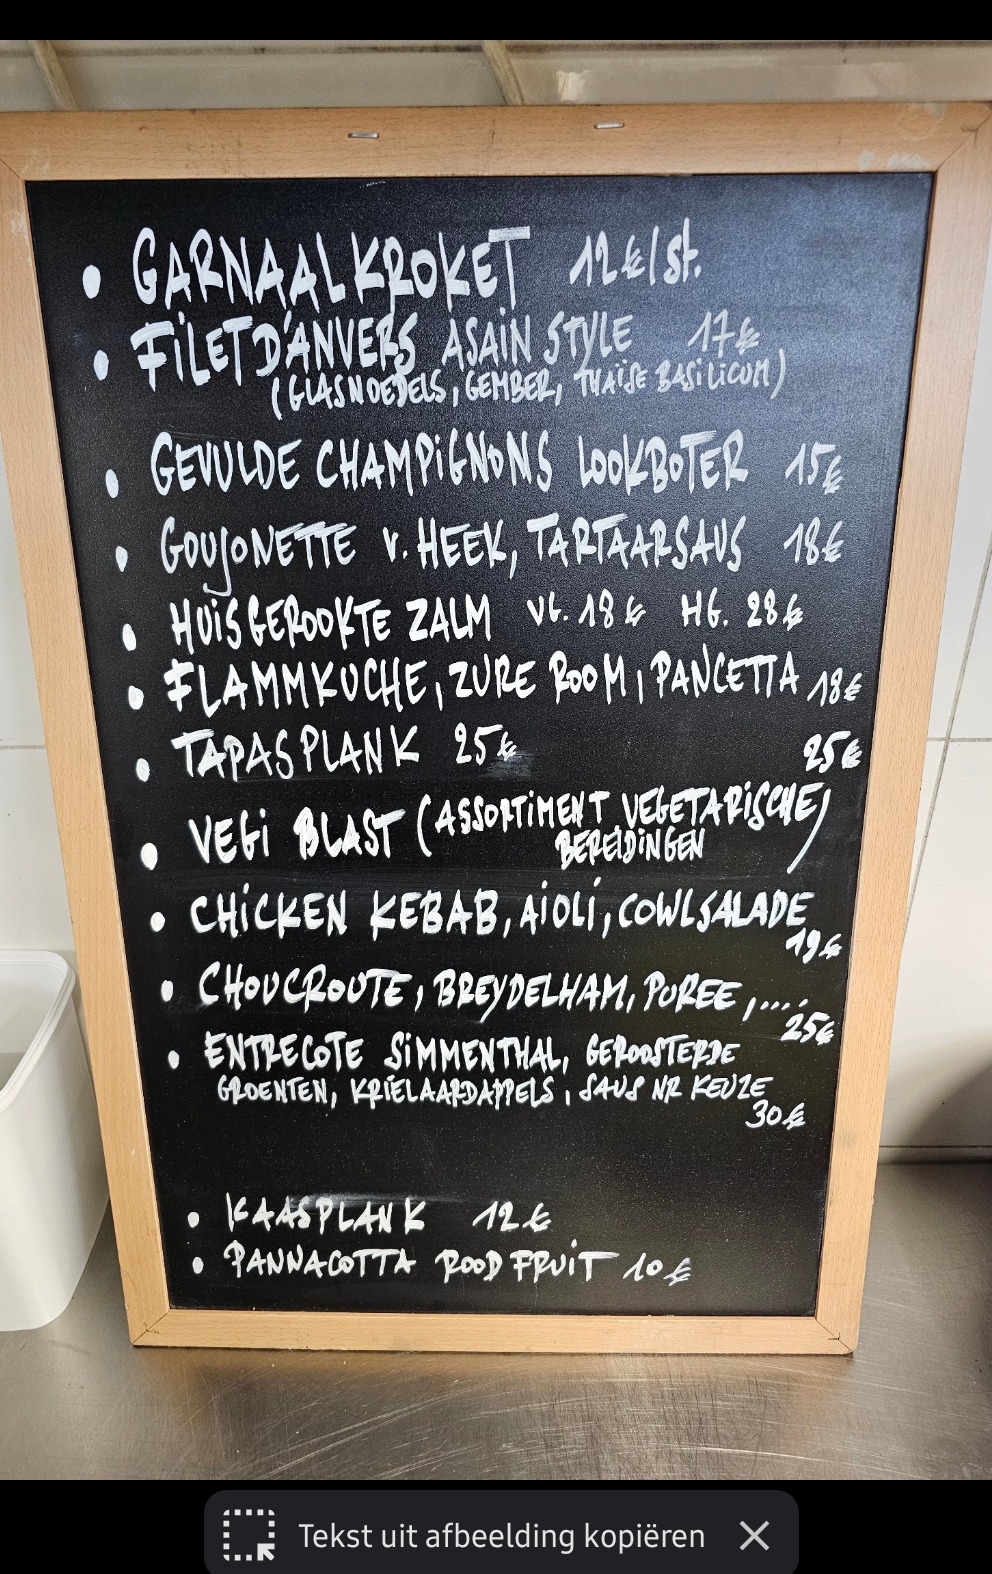 • GARNAALKROKET 12€/st.
• FILET D'ANVERS ASAIN STYLE 17€
(GLASNOEDELS, GEMBER, THAÏSE BASILICUM)
• GEVULDE CHAMPIGNONS LOOKBOTER 15€
• GOUJONETTE v. HEEK, TARTAARSAUS 18€
• HUISGEROOKTE ZALM VG. 18€ HG. 28€
• FLAMMKUCHE, ZURE ROOM, PANCETTA 18€
• TAPASPLANK 25€
25€
• VEGI BLAST (ASSORTIMENT VEGETARISCHE)
BEREIDINGEN
• CHICKEN KEBAB, AIOLI, COWLSALADE
19€
• CHOUCROUTE, BREYDELHAM, PUREE, ....
25€
• ENTRECOTE SIMMENTHAL, GEROOSTERDE
GROENTEN, KRIELAARDAPPELS, SAUS NR KEUZE
30€
• KAASPLANK 12€
• PANNACOTTA ROOD FRUIT 10€
Tekst uit afbeelding kopiëren